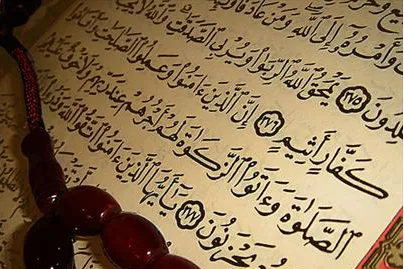 وَأَمْرُهُ إِلَى اللَّهِ وَمَنْ عَادَ
لِدُونَ ٢٧٥ يَمْحَقُ اللَّهُ الرِّبَوٰا وَيُرْبِي الصَّدَقَٰتِ وَاللَّهُ لَا يُحِبُّ
كَفَّارٍ أَثِيمٍ ٢٧٦ إِنَّ الَّذِينَ ءَامَنُوا وَعَمِلُوا الصَّٰلِحَٰتِ وَأَقَامُوا
الصَّلَوٰةَ وَءَاتَوُا الزَّكَوٰةَ لَهُمْ أَجْرُهُمْ عِندَ رَبِّهِمْ وَلَا خَوْفٌ عَلَيْهِمْ
يَحْزَنُونَ ٢٧٧ يَٰٓأَيُّهَا الَّذِينَ ءَامَنُوا اتَّقُوا اللَّهَ وَذَرُوا